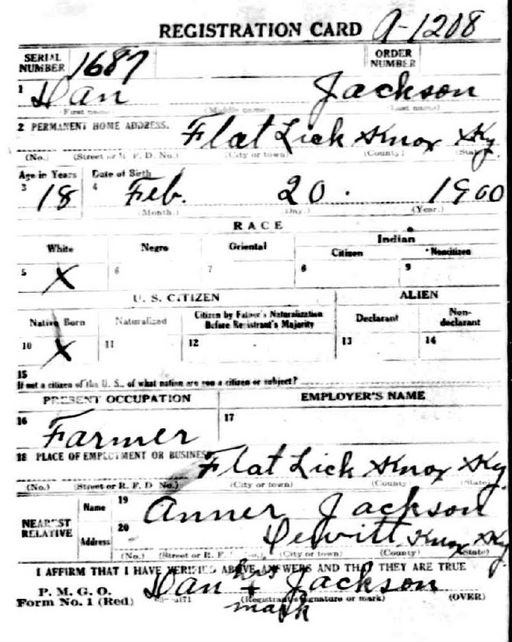 REGISTRATION CARD A-1208
SERIAL NUMBER 1687 ORDER NUMBER
1 Dan Jackson
(First name) (Middle name) (Last name)
2 PERMANENT HOME ADDRESS. Flat Lick Knox Ky.
(No.) (Street or R. F. D. No.) (City or town) (County) (State)
Age in Years Date of Birth
3 18 4 Feb. 20. 1900
(Month.) (Day.) (Year.)
RACE
White Negro Oriental Indian
Citizen Noncitizen
5 X 6 7 8 9
U. S. CITIZEN ALIEN
Native Born Naturalized Citizen by Father's Naturalization Before Registrant's Majority Declarant Non-declarant
10 X 11 12 13 14
15
If not a citizen of the U. S., of what nation are you a citizen or subject?
PRESENT OCCUPATION EMPLOYER'S NAME
16 Farmer 17
18 PLACE OF EMPLOYMENT OR BUSINESS. Flat Lick Knox Ky.
(No.) (Street or R. F. D. No.) (City or town) (County) (State)
NEAREST RELATIVE Name 19 Anner Jackson
Address 20 Dewitt Knox Ky
(No.) (Street or R. F. (City or town) (County) (State)
I AFFIRM THAT I HAVE VERIFIED ABOVE ANSWERS AND THAT THEY ARE TRUE
P. M. G. O. Dan his x Jackson
Form No. 1 (Red) (Registrant's signature or mark) (OVER)
mark